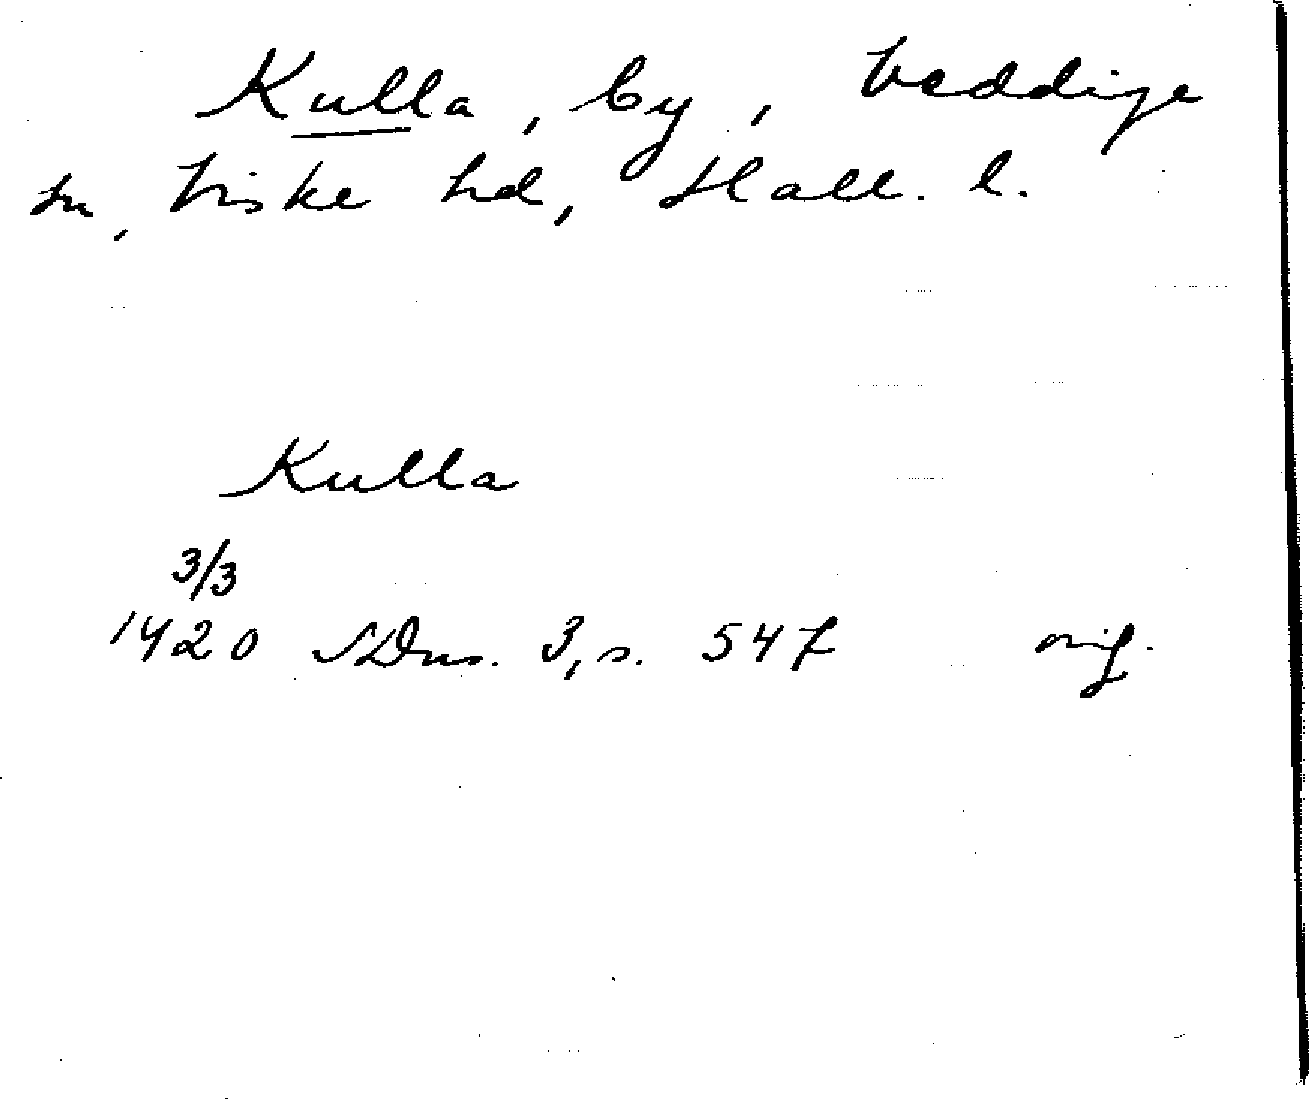 Kulla, by, Veddige
sn, Viske hd, Hall. l.
Kulla
3/3
1420 SDns. 3, s. 547 orig.